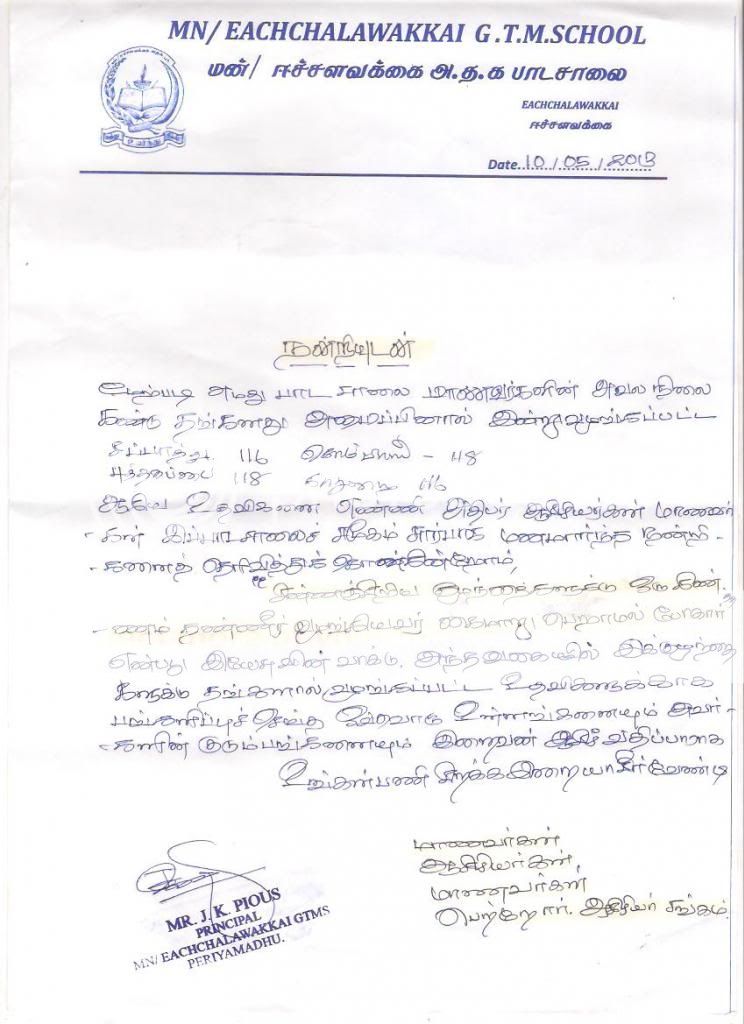 MN/ EACHCHALAWAKKAI G.T.M.SCHOOL
மன்/ ஈச்சளவக்கை அ.த.க பாடசாலை
EACHCHALAWAKKAI
ஈச்சளவக்கை
Date..10/05/2013
நன்றியுடன்
மேற்படி எமது பாடசாலை மாணவர்களின் அவல நிலை
கண்டு தங்களது அமைப்பினால் இன்று வழங்கப்பட்ட
சப்பாத்து. 116 - 118
புத்தகப்பை 118 116
ஆகிய உதவிகளை எண்ணி அதிபர் ஆசிரியர்கள் மாணவர்
-கள் இப்பாடசாலைச் சமூகம் சார்பாக மனமார்ந்த நன்றி-
-களைத் தெரிவித்துக் கொள்கின்றோம்,
"சின்னஞ்சிறிய குழந்தைகளுக்கு ஒரு கிண்-
-ணம் தண்ணீர் வழங்கியவர் கைமாறு பெறாமல் போகார்"
என்பது இயேசுவின் வாக்கு. அந்தவகையில் இக்குழந்தை
களுக்கு தங்களால் வழங்கப்பட்ட உதவிகளுக்காக
பங்களிப்புச் செய்த ஒவ்வொரு உள்ளங்களையும் அவர்-
-களின் குடும்பங்களையும் இறைவன் ஆசீர்வதிப்பாராக
உங்கள் பணி சிறக்க இறையாசீர் வேண்டி
மாணவர்கள்
ஆசிரியர்கள்,
மாணவர்கள்
பெற்றோர். ஆசிரியர் சங்கம்.
MR. J. K. PIOUS
PRINCIPAL
MN/ EACHCHALAWAKKAI GTMS
PERIYAMADHU.